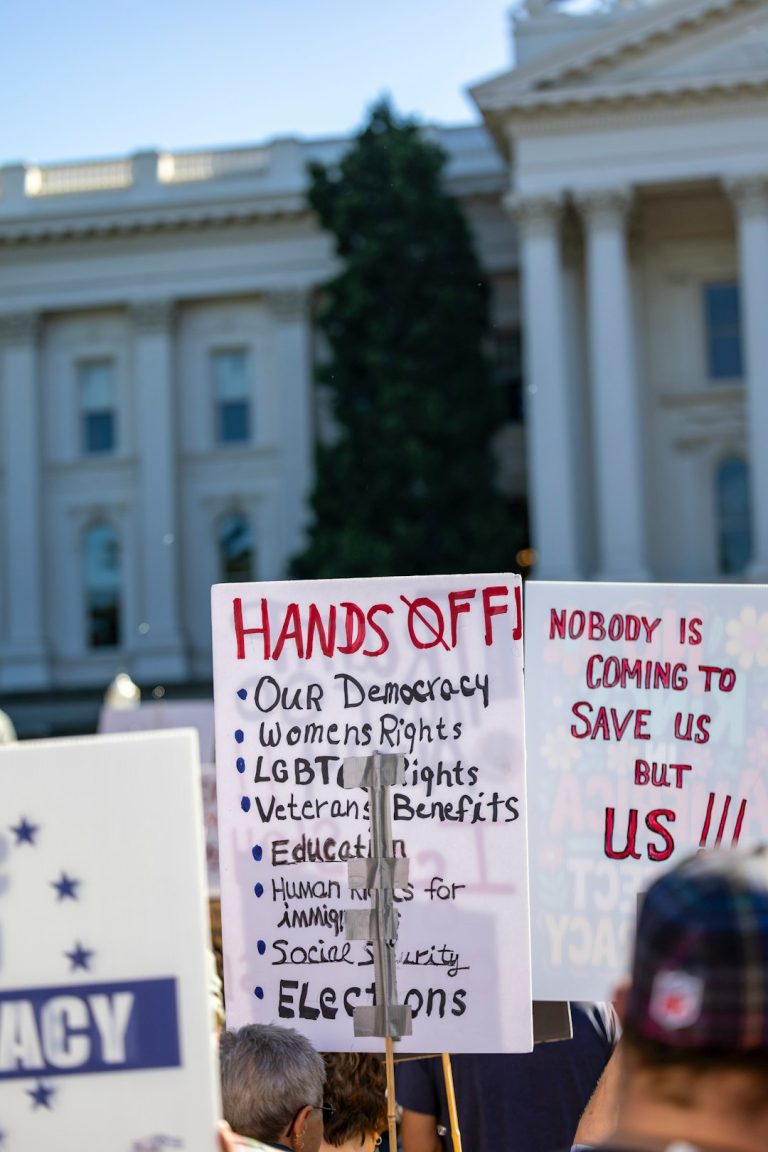 HANDS OFF!
• Our Democracy
• Womens Rights
• LGBT Rights
• Veterans Benefits
• Education
• Human for
• Social
• Elections
NOBODY IS
COMING TO
SAVE US
BUT
US!!!
ACY